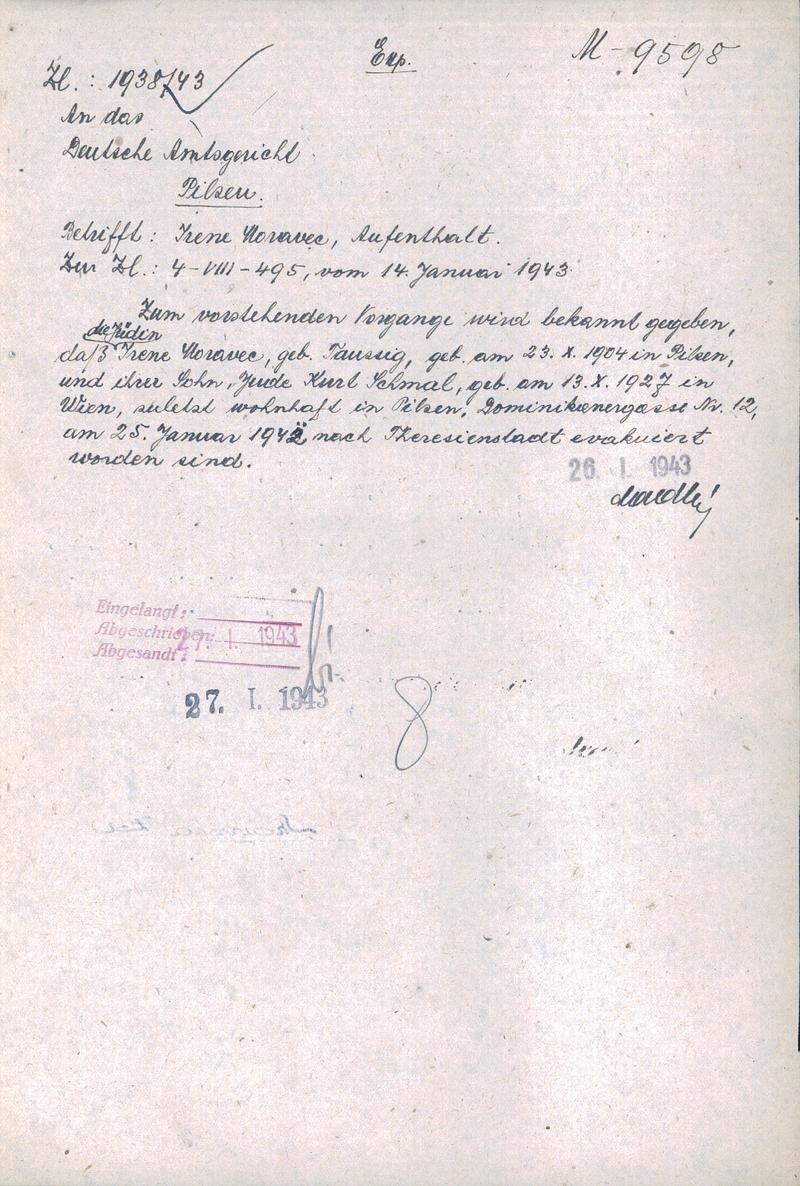 Exp.
M - 9598
Zl.: 1938/43
An das
Deutsche Amtsgericht
Pilsen.
Betrifft: Irene Moravec, Aufenthalt.
Zur Zl.: 4-VIII-495, vom 14. Januar 1943
Zum vorstehenden Vorgange wird bekannt gegeben,
die Jüdin
daß Irene Moravec, geb. Taussig, geb. am 23. X. 1904 in Pilsen,
und ihrer Sohn, Jude Kurt Schmal, geb. am 13. X. 1927 in
Wien, zuletzt wohnhaft in Pilsen, Dominikanergasse Nr. 12,
am 25. Januar 1942 nach Theresienstadt evakuiert
worden sind.
26. I. 1943
Eingelangt:
Abgeschrieben: 27. I. 1943
Abgesandt:
27. I. 1943
8